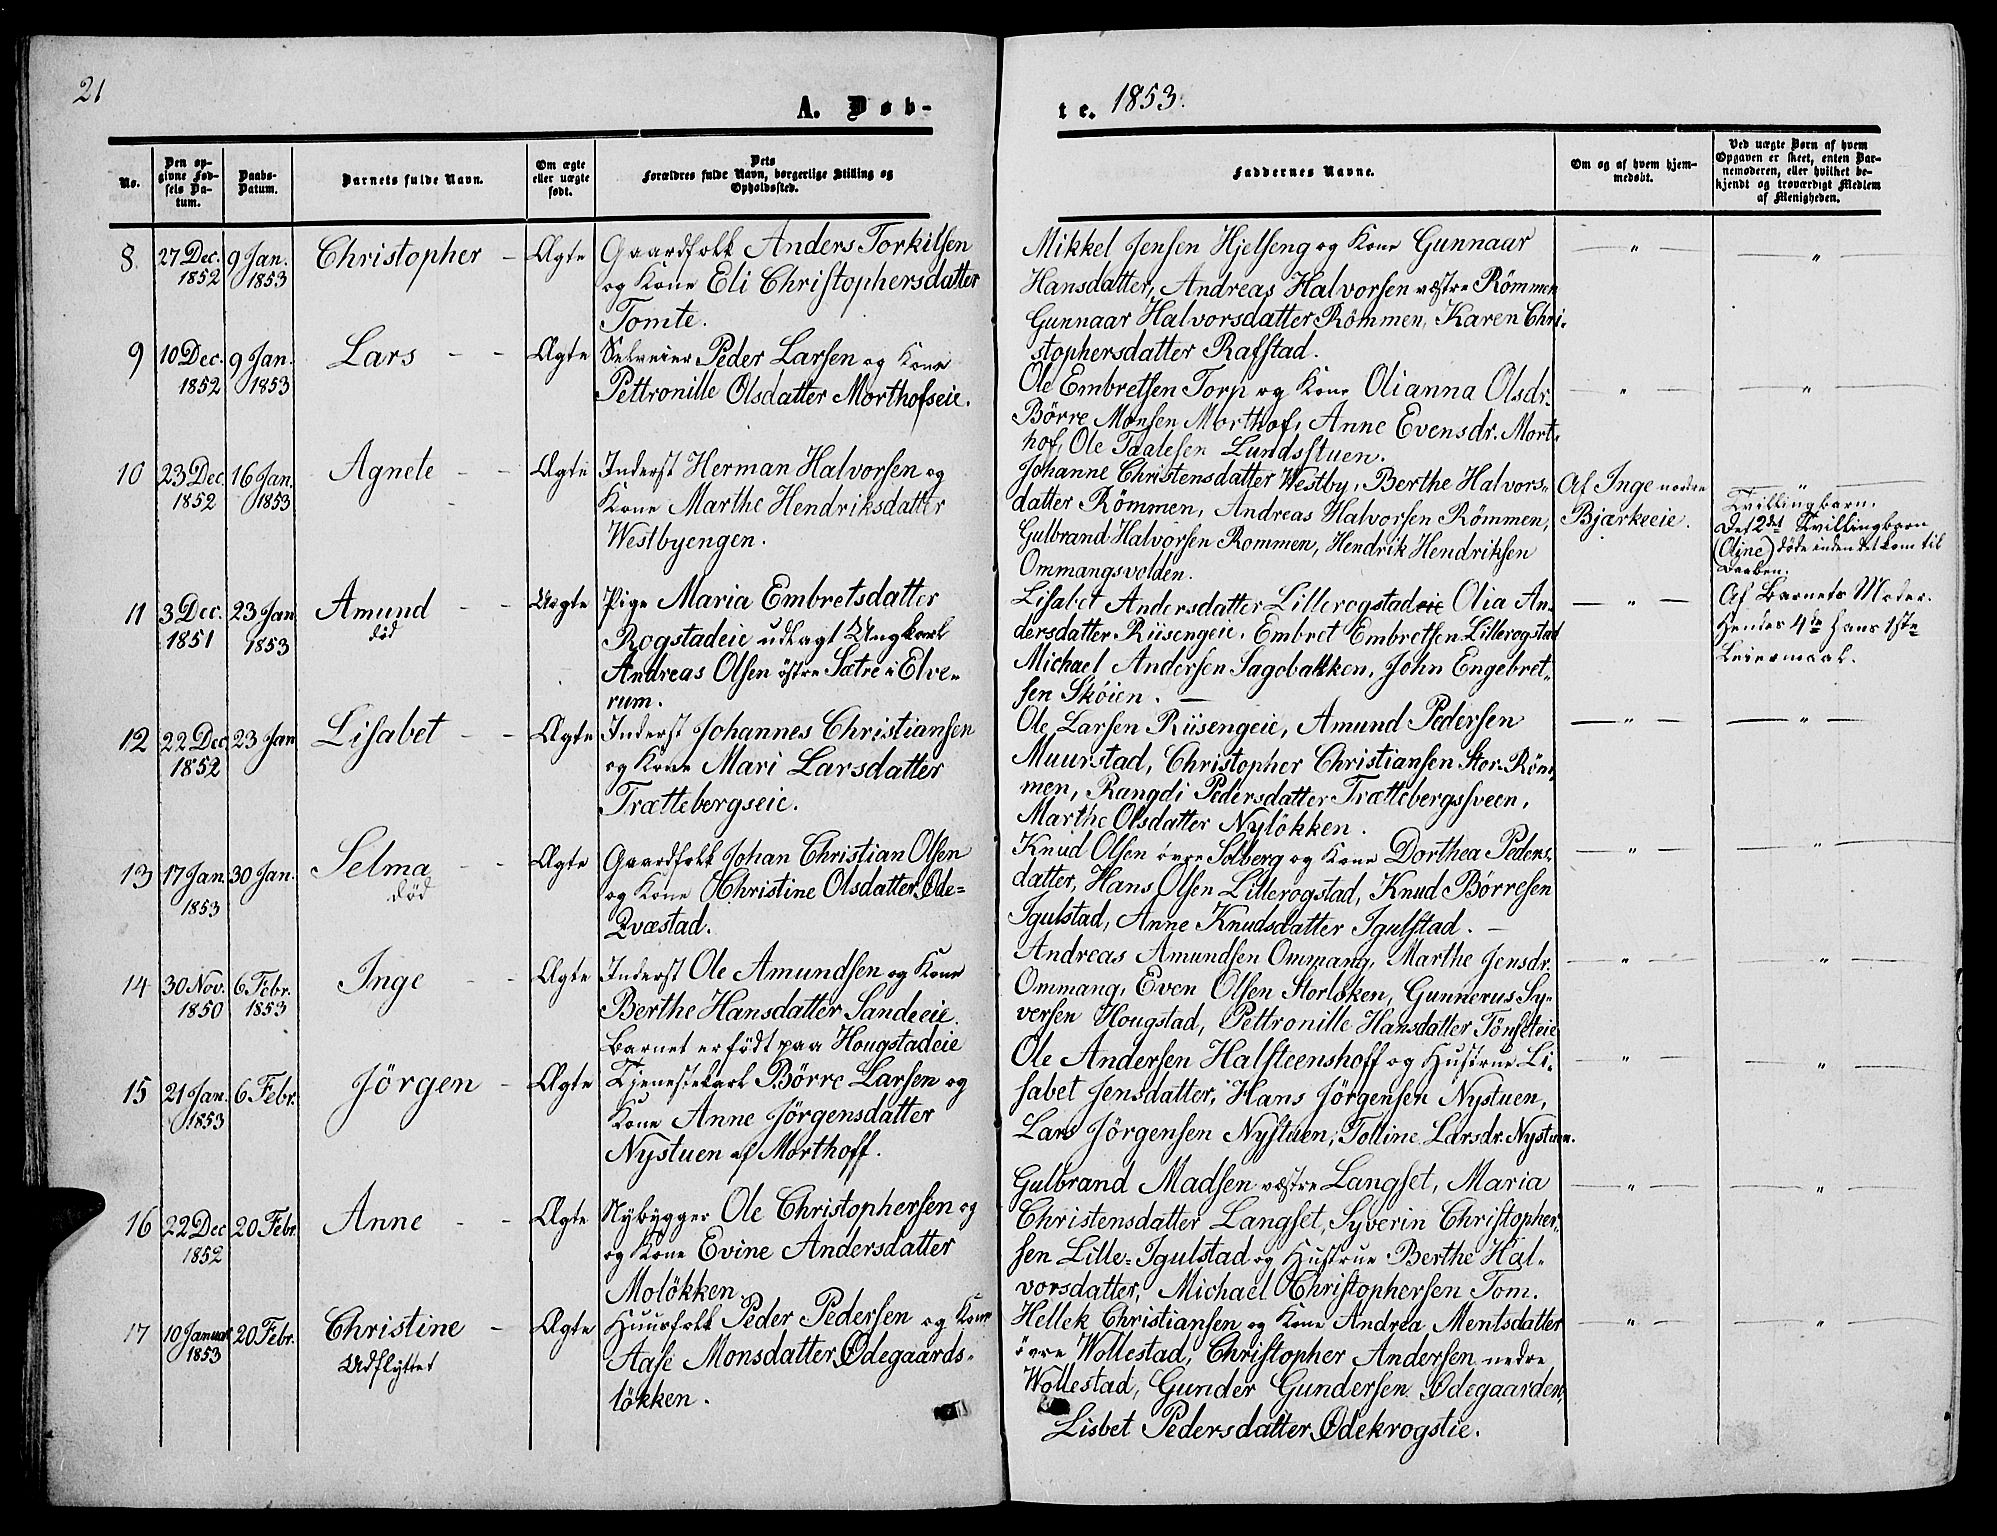 21
A. Døb-
te. 1853.
No.
Den op-
givne Fød-
sels Da-
tum.
Daabs-
Datum.
Barnets fulde Navn.
Om ægte
eller uægte
født.
Dets
Forældres fulde Navn, borgerlige Stilling og
Opholdssted.
Faddernes Navne.
Om og af hvem hjem-
medøbt.
Ved uægte Børn af hvem
Opgaven er skeet, enten Bar-
nemoderen, eller hvilket be-
kjendt og troværdigt Medlem
af Menigheden.
8. 27 Dec. 1852 9 Jan. 1853 Christopher - Ægte
Gaardfolk Anders Torkilsen
og Kone Eli Christophersdatter
Tomte.
Mikkel Jensen Hjelseng og Kone Gunnaur
Hansdatter, Andreas Halvorsen væstre Römmen
Gunnaar Halvorsdatter Römmen, Karen Chri-
stophersdatter Rafstad.
— " —
— " —
9 10 Dec. 1852 9 Jan. 1853 Lars - - Ægte
Selveier Peder Larsen og Kone
Pettronille Olsdatter Morthofseie.
Ole Embretsen Torp og Kone Olianna Olsdr.
Börre Monsen Morthof, Anne Evensdr. Mort-
hof, Ole Taalesen Lundsstuen.
— " —
— " —
10 23 Dec. 1852 16 Jan. 1853 Agnete - - Ægte
Inderst Herman Halvorsen og
Kone Marthe Hendriksdatter
Westbyengen.
Johanne Christensdatter Westby, Berthe Halvors-
datter Römmen, Andreas Halvorsen Römmen,
Gulbrand Halvorsen Rommen, Hendrik Hendriksen
Ommangsvolden.
Af Inge nordre
Bjærkeeie.
Tvillingbarn.
Det 2det Tvillingbarn
(Oline) døde inden det kom til
Daaben.
11 3 Dec. 1851 23 Jan 1853 Amund - - Uægte
död
Pige Maria Embretsdatter
Rogstadeie udlagt Ungkarl
Andreas Olsen östre Sætre i Elve-
rum.
Lisabet Andersdatter Lillerogstadeie Olia An-
dersdatter Riisengeie, Embret Embretsen Lillerogstad
Michael Andersen Sagobakken, John Engebret-
sen Sköien. —
— " —
Af Barnets Moder.
Hendes 4de Hans 1ste
Leiermaal.
12 22 Dec 1852 23 Jan Lisabet - - Ægte
Inderst Johannes Christiansen
og Kone Mari Larsdatter
Trættebergseie.
Ole Larsen Riisengeie, Amund Pedersen
Muurstad, Christopher Christiansen Stor-Röm-
men, Rangdi Pedersdatter Trættebergssveen,
Marthe Olsdatter Nylökken.
— " —
— " —
13 17 Jan. 1853 30 Jan. Selma - - Ægte
död
Gaardfolk Johan Christian Olsen
og Kone Christine Olsdatter Öde-
Qvæstad.
Knud Olsen övre Solberg og Kone Dorthea Peders-
datter, Hans Olsen Lillerogstad, Knud Börresen
Igulstad, Anne Knudsdatter Igulstad. —
— " —
— " —
14 30 Nov. 1850 6 Febr. 1853 Inge - - Ægte
Inderst Ole Amundsen og Kone
Berthe Hansdatter Sandeeie.
Barnet er födt paa Hougstadeie
Andreas Amundsen Ommang, Marthe Jensdr.
Ommang, Even Olsen Storlöken, Gunnerus Sy-
versen Hougstad, Pettronille Hansdatter Tönseteie
— " —
— " —
15 21 Jan. 1853 6 Febr. Jörgen - Ægte
Tjenestekarl Börre Larsen og
Kone Anne Jörgensdatter
Nystuen af Morthoff.
Ole Andersen Halsteenshoff og Hustrue Li-
sabet Jensdatter, Hans Jörgensen Nystuen,
Lars Jörgensen Nystuen, Tolline Larsdr. Nystuen.
— " —
— " —
16 22 Dec 1852 20 Febr. Anne - - Ægte
Nybygger Ole Christophersen og
og Kone Evine Andersdatter
Molökken.
Gulbrand Madsen væstre Langset, Maria
Christensdatter Langset, Syverin Christopher-
sen Lille-Igulstad og Hustrue Berthe Hal-
vorsdatter, Michael Christophersen Tom.
— " —
— " —
17 10 Januar 1853 20 Febr. Christine - Ægte
Udflyttet
Huusfolk Peder Pedersen og Kone
Aase Monsdatter Ödegaards-
lökken.
Hellek Christiansen og Kone Andrea Mentsdatter
övre Wollestad, Christopher Andersen nedre
Wollestad, Gunder Gundersen Ödegaarden,
Lisbet Pedersdatter Ödekrogstie.
— " —
— " —